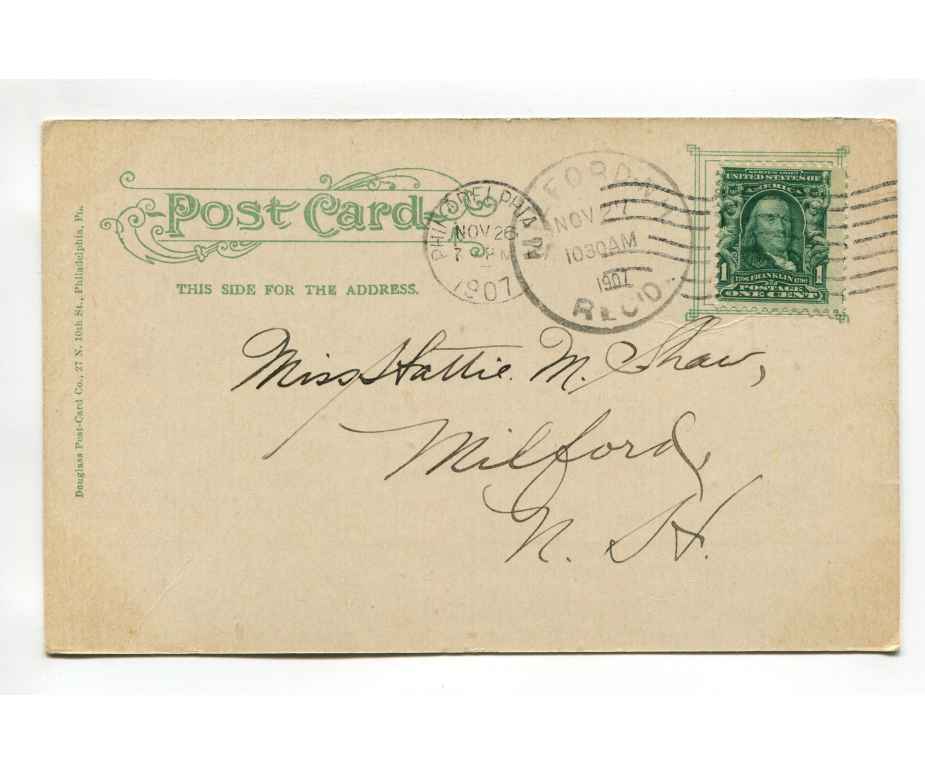 Post Card
THIS SIDE FOR THE ADDRESS.
Douglass Post-Card Co., 27 N. 10th St., Philadelphia, Pa.
PHILADELPHIA
NOV 26
7 PM
1907
MILFORD N.H.
NOV 27
1030AM
1907
REC'D.
SERIES 1902
UNITED STATES OF
AMERICA
1 FRANKLIN 1
POSTAGE
ONE CENT
Miss Hattie. M. Shaw,
Milford,
N. H.